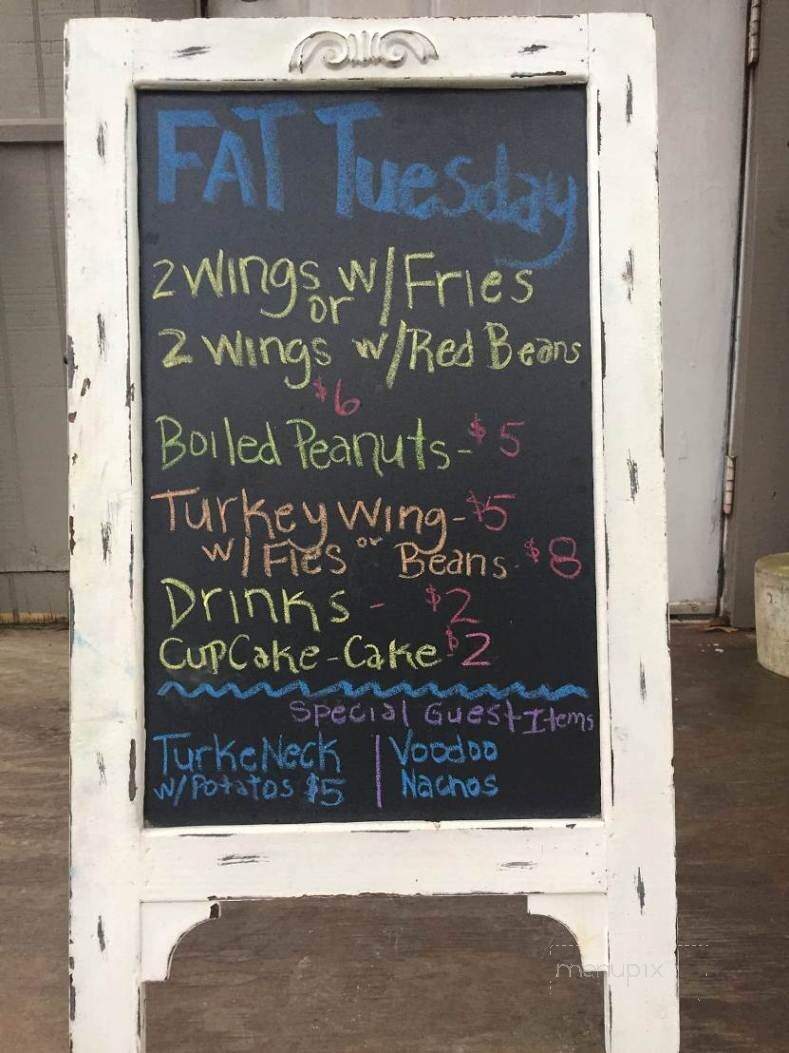 FAT Tuesday
2 Wings w/Fries
or
2 Wings w/Red Beans
$6
Boiled Peanuts - $5
Turkey Wing - $5
w/Fies or Beans - $8
Drinks - $2
CupCake - Cake $2
Special Guest Items
TurkeNeck | Voodoo
w/Potatos $5 | Nachos
menupix